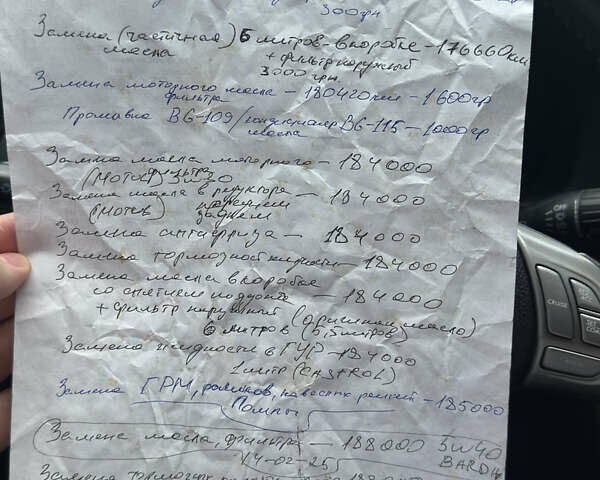 300грн
Замена (частичная) 6 литров в коробке - 176660км
масла + фильтр наружный
3000 грн.
Замена моторного масла - 180420км - 1600гр
фильтра
Промывка BG-109/кондиционер BG-115 - 1000гр
масла
Замена масла моторного - 184000
фильтра
(Мотив) 5w30
Замена масла в редукторе - 184000
переднем
(мотив) заднем
Замена антифриза - 184000
Замена тормозной жидкости - 184000
Замена масла в коробке
со снятием поддона - 184000
+ фильтр наружный (оригинал масло)
6 литров (5,5 литров)
Замена жидкости в ГУР - 184000
1 литр (CASTROL)
Замена ГРМ, роликов, навесных ремней - 185000
Помпы
Замена масла, фильтра - 188000 5w40
14-02-25 BARDH
Замена тормозных
CRUISE